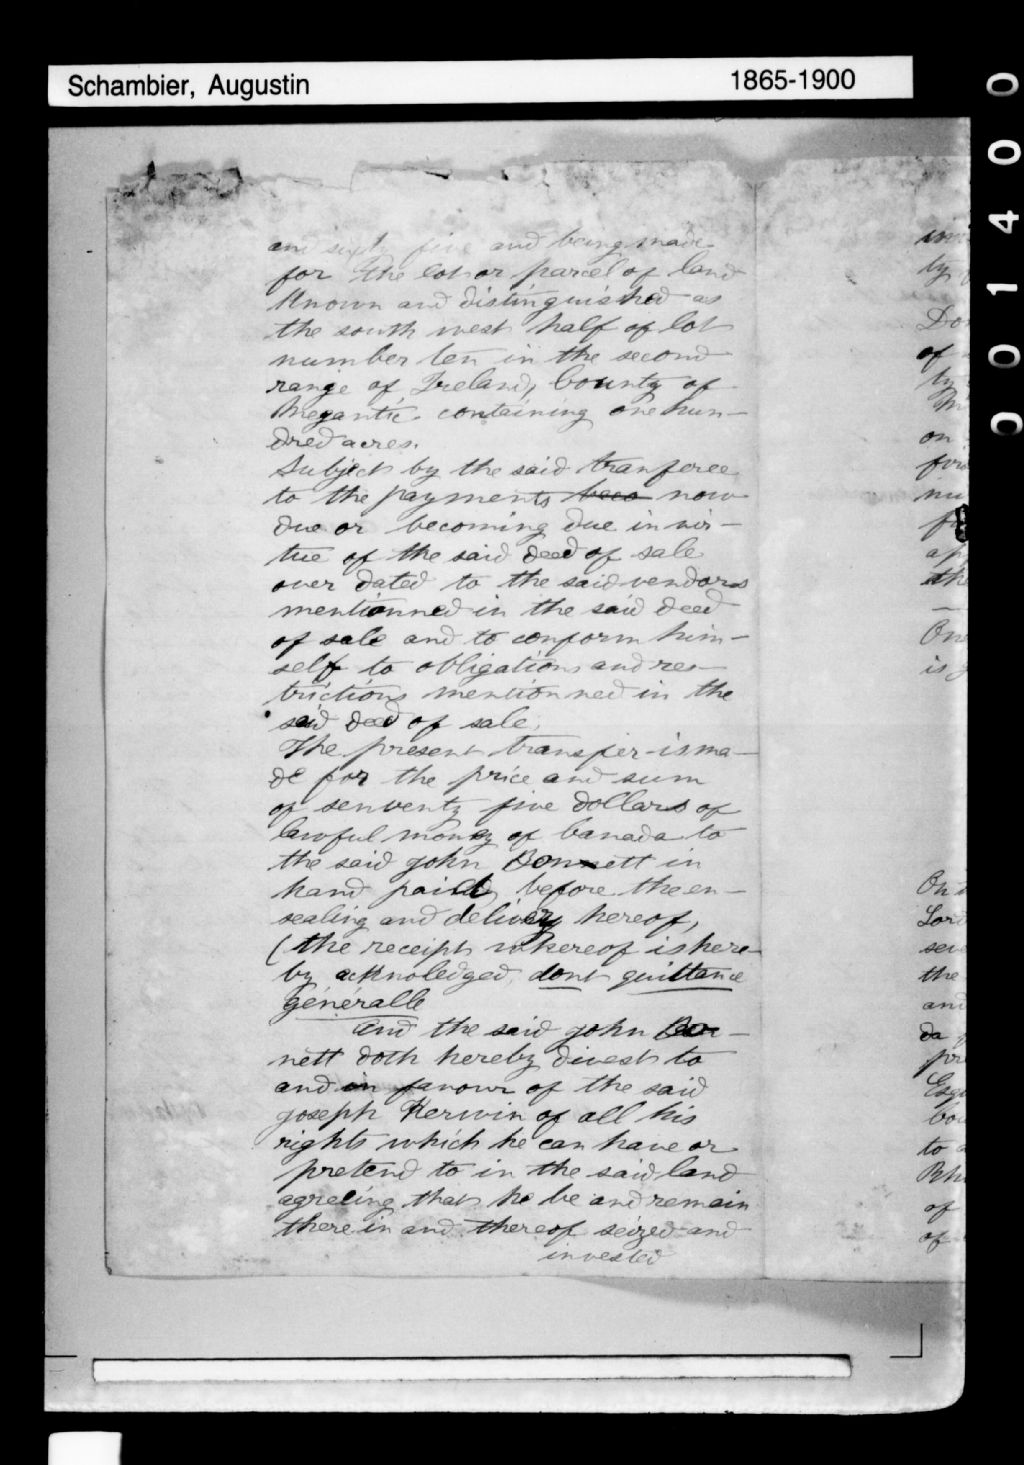 Schambier, Augustin 1865-1900
001400
and sixty five and being made
for the lot or parcel of land
Known and distinguished as
the south west half of lot
number ten in the second
range of Ireland, County of
Megantic containing one hun-
dred acres.
Subject by the said tranferee
to the payments now
due or becoming due in vir-
tue of the said deed of sale
over dated to the said vendors
mentionned in the said deed
of sale and to conform him-
self to obligations and res-
trictions mentionned in the
said deed of sale.
The present transfer is ma-
de for the price and sum
of senventy five dollars of
lawful money of Canada to
the said john Bennett in
hand paid, before the en-
sealing and delivery hereof,
(the receipt whereof is here-
by acknoledged, dont quittance
généralle
and the said john Ben-
nett doth hereby divest to
and in favour of the said
joseph Kerwin of all his
rights which he can have or
pretend to in the said land
agreeing that he be and remain
therein and thereof seized and
invested
ty
Don
of
on
the
One
is
On
Lord
the
and
da
Esqu
to
of
of